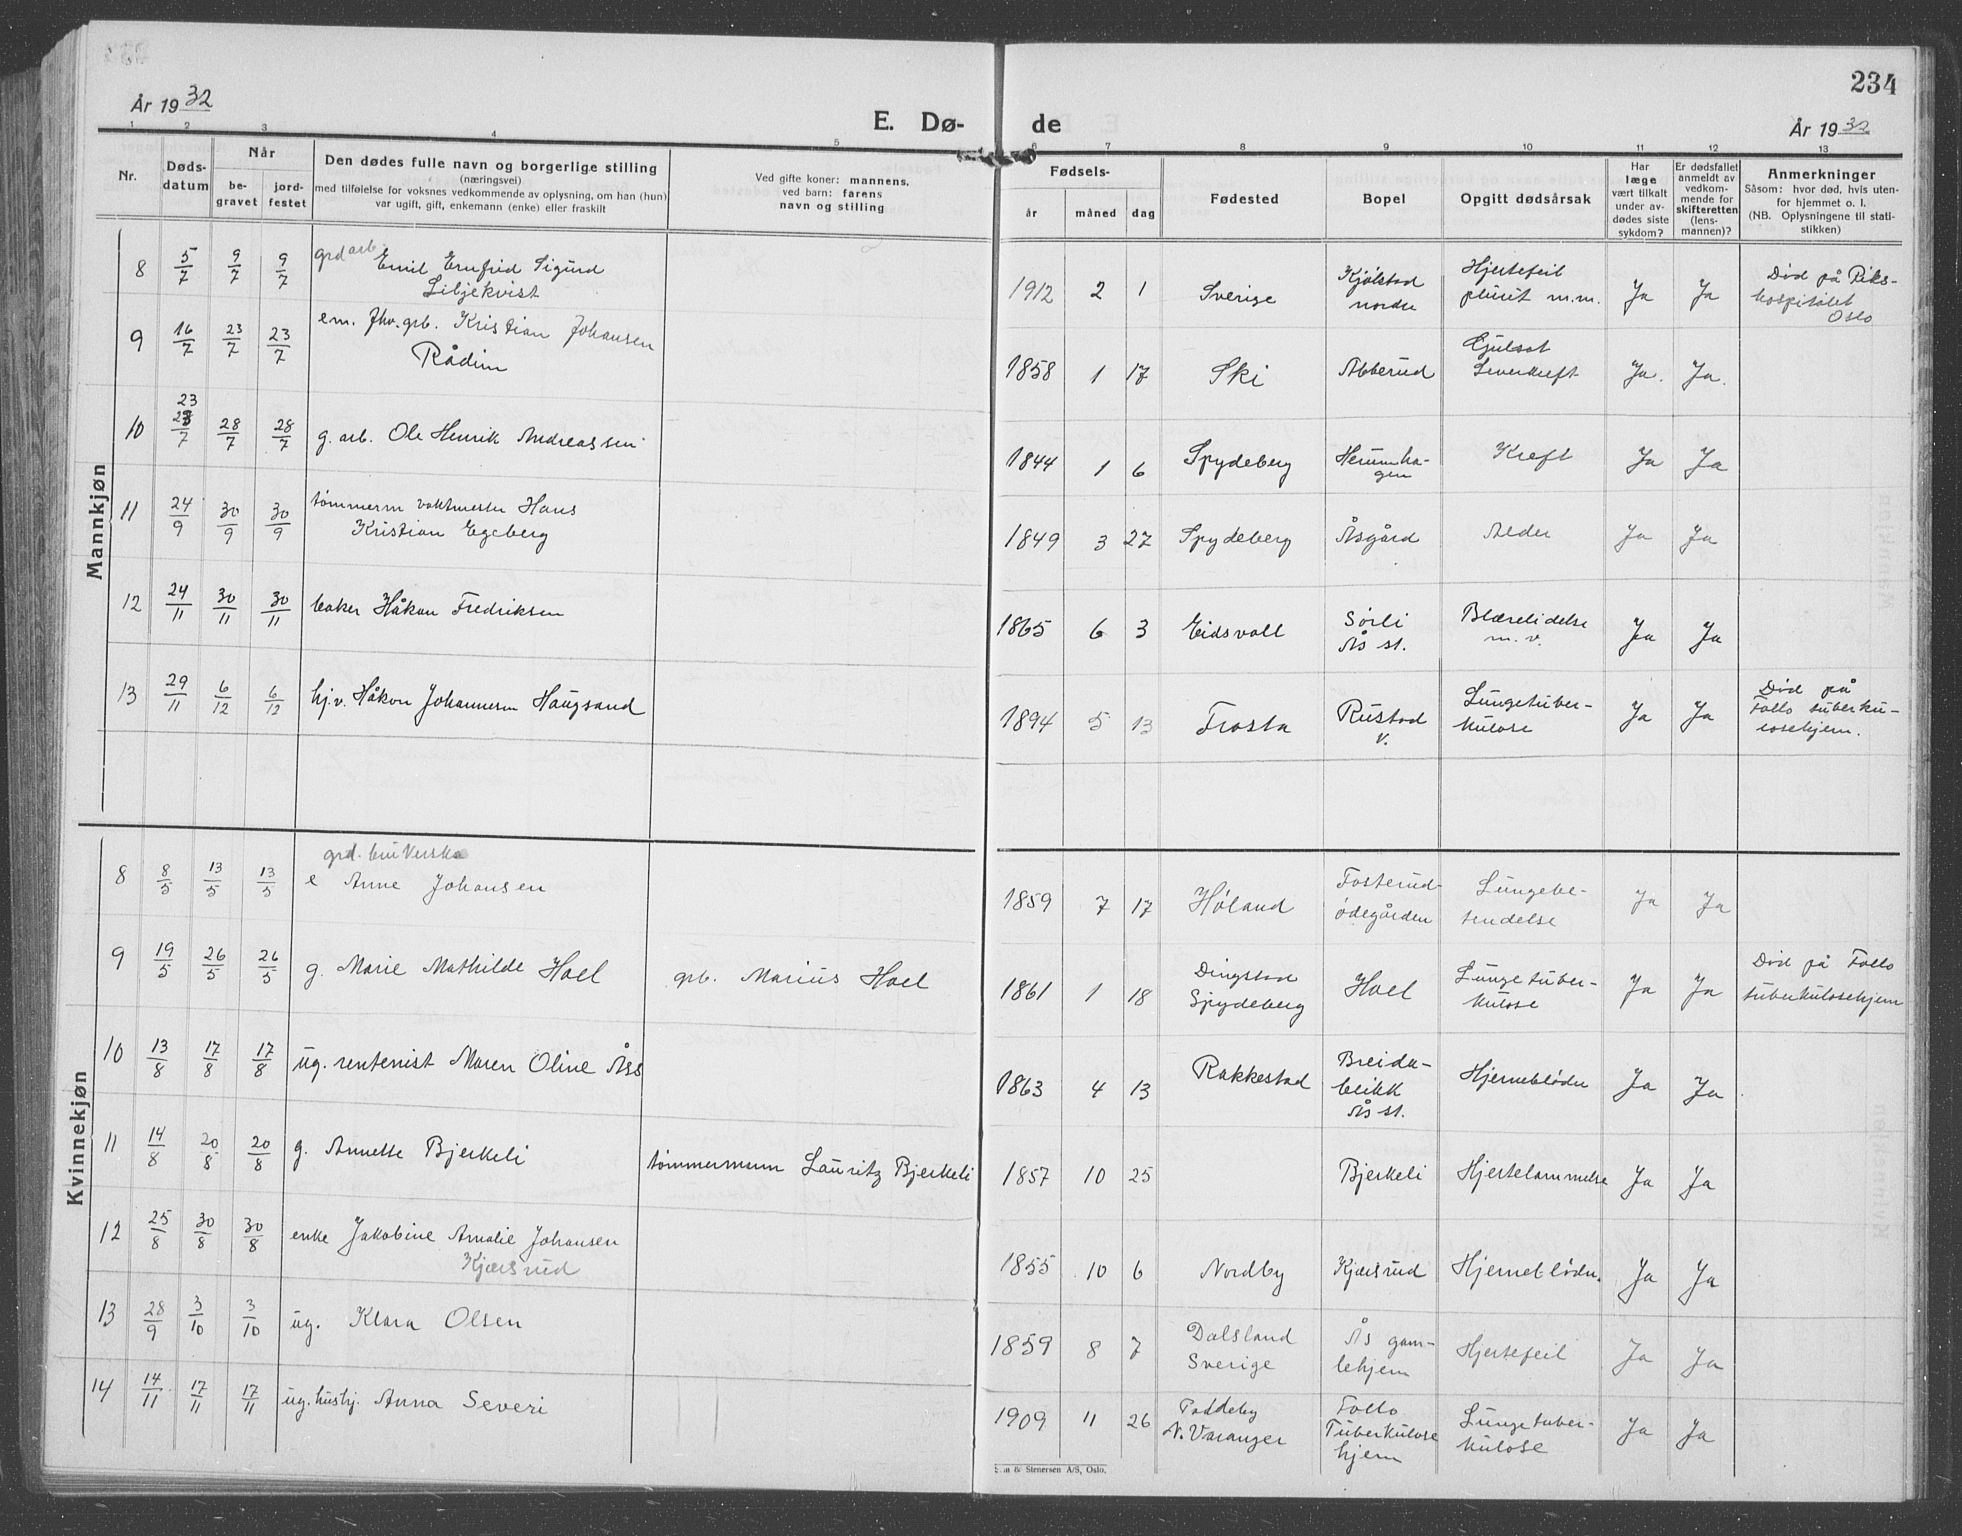 234
År 1932
E. Dø-
de
År 1932
1 2 3 4 5 6 7 8 9 10 11 12 13
Nr.
Døds-
datum
Når
be-
gravet
jord-
festet
Den dødes fulle navn og borgerlige stilling
(næringsvei)
med tilføielse for voksnes vedkommende av oplysning, om han (hun)
var ugift, gift, enkemann (enke) eller fraskilt
Ved gifte koner: mannens,
ved barn: farens
navn og stilling
Fødsels-
år måned dag
Fødested
Bopel
Opgitt dødsårsak
Har
læge
vært tilkalt
under av-
dødes siste
sykdom?
Er dødsfallet
anmeldt av
vedkom-
mende for
skifteretten
(lens-
mannen)?
Anmerkninger
Såsom: hvor død, hvis uten-
for hjemmet o. l.
(NB. Oplysningene til stati-
stikken)
Mannkjøn
8 5/7 9/7 9/7 grd arb. Emil Ernfrid Sigurd
Liljekvist
1912 2 1 Sverige Kjølstad
nordre
Hjertefeil
plurit m.m. Ja Ja
Død på Riks-
hospitalet
Oslo
9 16/7 23/7 23/7 em. fhv. grb. Kristian Johansen
Rådim
1858 1 17 Ski Abberud
Gulsot
Leverkreft Ja. Ja.
10 23 23/7 28/7 28/7 g. arb. Ole Henrik Andreassen
1844 1 6 Spydeberg Herumha-
gen Kreft Ja Ja
11 24/9 30/9 30/9 tømmerm vaktmester Hans
Kristian Egeberg
1849 3 27 Spydeberg Åsgård Alder Ja Ja
12 24/11 30/11 30/11 baker Håkon Fredriksen
1865 6 3 Eidsvoll Sørli
Ås st.
Blærelidelse
m. v. Ja Ja
13 29/11 6/12 6/12 hj.v. Håkon Johannesen Haugsand
1894 5 13 Frosta Rustad
v.
Lungetuber-
kulose Ja Ja
Død på
Follo tuberku-
losehjem.
Kvinnekjøn
8 8/5 13/5 13/5 grd. brukerske
e Anne Johansen
1859 7 17 Høland Fosterud-
ødegården
Lungebe-
tendelse Ja Ja
9 19/5 26/5 26/5 g. Marie Mathilde Hoel grb. Marius Hoel
1861 1 18 Dingstad
Spydeberg Hoel
Lungetuber-
kulose Ja Ja
Død på Follo
tuberkulosehjem
10 13/8 17/8 17/8 ug. rentenist Maren Oline Ås
1863 4 13 Rakkestad Breida-
blikk
Ås st. Hjerneblødn Ja Ja
11 14/8 20/8 20/8 g. Annette Bjerkeli tømmermann Lauritz Bjerkeli
1857 10 25 Bjerkeli Hjertelammelse Ja Ja
12 25/8 30/8 30/8 enke Jakobine Amalie Johansen
Kjærsrud
1855 10 6 Nordby Kjærsrud Hjerneblødn. Ja Ja
13 28/9 3/10 3/10 ug. Klara Olsen
1859 8 7 Dalsland
Sverige Ås gam-
lehjem Hjertefeil Ja Ja
14 14/11 17/11 17/11 ug. hushj. Anna Severi
1909 11 26
N. Varanger Follo
Tuberkulose
hjem
Lungetuber-
kulose Ja Ja
& Stenersen A/S, Oslo.